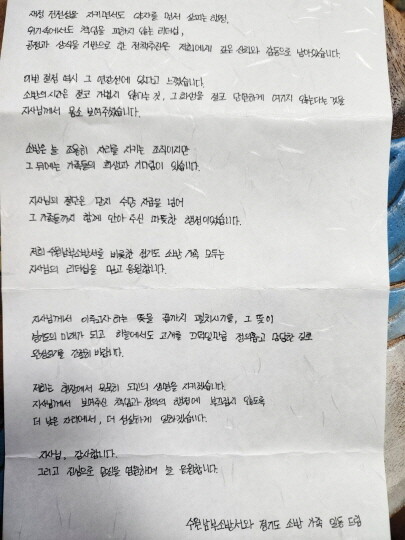 재정 건전성을 지키면서도 약자를 먼저 살피는 행정,
위기속에서도 책임을 피하지 않는 리더십,
공정과 상식을 기반으로 한 정책추진은 저희에게 깊은 신뢰와 감동으로 남아있습니다.
이번 결정 역시 그 연장선에 있다고 느꼈습니다.
소방의 시간은 결코 가볍지 않다는 것, 그 희생을 결코 당연하게 여기지 않는다는 것을
지사님께서 몸소 보여주셨습니다.
소방은 늘 조용히 자리를 지키는 조직이지만
그 뒤에는 가족들의 희생과 기다림이 있습니다.
지사님의 결단은 단지 수당 지급을 넘어
그 가족들까지 함께 안아 주신 따뜻한 행정이었습니다.
저희 수원남부소방서를 비롯한 경기도 소방 가족 모두는
지사님의 리더십을 믿고 응원합니다.
지사님께서 이루고자 하는 뜻을 끝까지 펼치시기를, 그 뜻이
경기도의 미래가 되고 하늘에서도 고개를 끄덕일만큼 정의롭고 당당한 길로
완성되기를 간절히 바랍니다.
저희는 현장에서 묵묵히 도민의 생명을 지키겠습니다.
지사님께서 보여주신 책임과 정의의 행정에 부끄럽지 않도록
더 낮은 자세에서, 더 성실하게 일하겠습니다.
지사님, 감사합니다.
그리고 진심으로 당신을 염원하며 늘 응원합니다.
수원남부소방서와 경기도 소방 가족 일동 드림